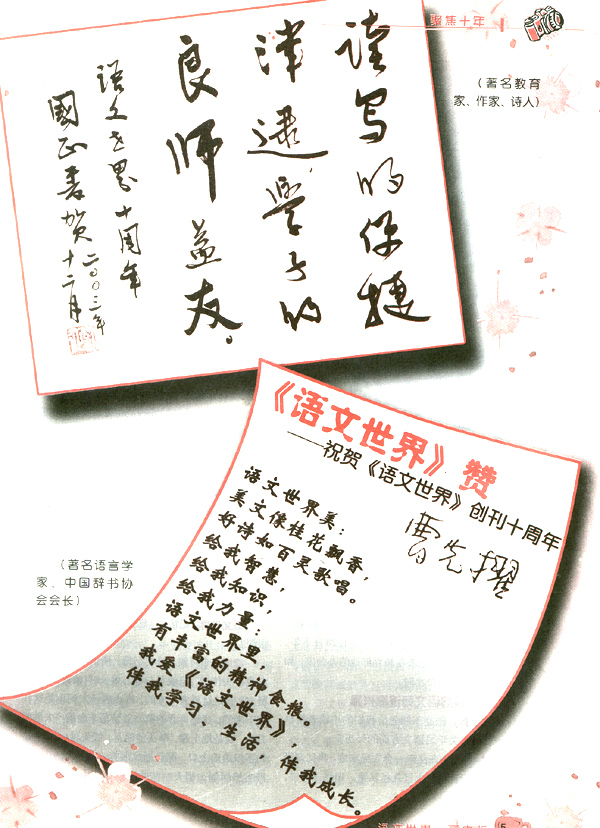 聚焦十年
读写的
津逮學子的
良师益友。
语文世界十周年
國正書贺二〇〇三年
十二月
（著名教育
家、作家、诗人）
《语文世界》赞
——祝贺《语文世界》创刊十周年
曹先擢
语文世界美：
美文像桂花飘香，
好诗如百灵歌唱。
给我智慧，
给我知识，
给我力量：
语文世界里，
有丰富的精神食粮。
我爱《语文世界》，
伴我学习、生活，伴我成长。
（著名语言学
家、中国辞书协
会会长）
5